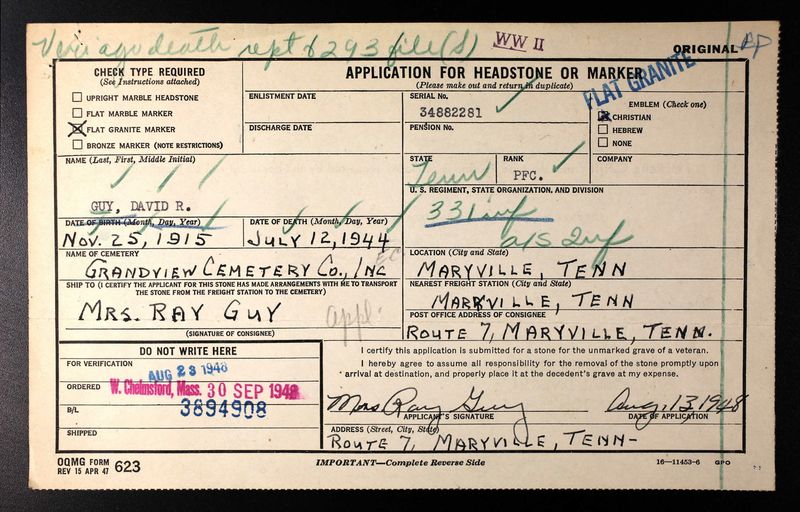 Veri ago death rept & 293 file (S) WW II
ORIGINAL
CHECK TYPE REQUIRED
(See Instructions attached)
UPRIGHT MARBLE HEADSTONE
FLAT MARBLE MARKER
FLAT GRANITE MARKER
BRONZE MARKER (NOTE RESTRICTIONS)
APPLICATION FOR HEADSTONE OR MARKER
(Please make out and return in duplicate)
FLAT GRANITE
ENLISTMENT DATE
DISCHARGE DATE
SERIAL No.
34882281
PENSION No.
EMBLEM (Check one)
CHRISTIAN
HEBREW
NONE
NAME (Last, First, Middle Initial)
GUY, DAVID R.
STATE
Tenn
RANK
PFC.
COMPANY
U. S. REGIMENT, STATE ORGANIZATION, AND DIVISION
331 inf
DATE OF BIRTH (Month, Day, Year)
Nov. 25, 1915
DATE OF DEATH (Month, Day, Year)
JULY 12, 1944
NAME OF CEMETERY
GRANDVIEW CEMETERY CO., INC
LOCATION (City and State)
MARYVILLE, TENN
SHIP TO (I CERTIFY THE APPLICANT FOR THIS STONE HAS MADE ARRANGEMENTS WITH ME TO TRANSPORT
THE STONE FROM THE FREIGHT STATION TO THE CEMETERY)
MRS. RAY GUY
appl.
(SIGNATURE OF CONSIGNEE)
NEAREST FREIGHT STATION (City and State)
MARYVILLE, TENN
POST OFFICE ADDRESS OF CONSIGNEE
ROUTE 7, MARYVILLE, TENN.
DO NOT WRITE HERE
FOR VERIFICATION
AUG 23 1948
ORDERED
W. Chelmsford, Mass. 30 SEP 1948
B/L
3894908
SHIPPED
I certify this application is submitted for a stone for the unmarked grave of a veteran.
I hereby agree to assume all responsibility for the removal of the stone promptly upon
arrival at destination, and properly place it at the decedent's grave at my expense.
Mrs Ray Guy
Aug. 13, 1948
APPLICANT'S SIGNATURE
DATE OF APPLICATION
ADDRESS (Street, City, State)
ROUTE 7, MARYVILLE, TENN-
OQMG FORM
REV 15 APR 47 623
IMPORTANT—Complete Reverse Side
16—11453-6 GPO